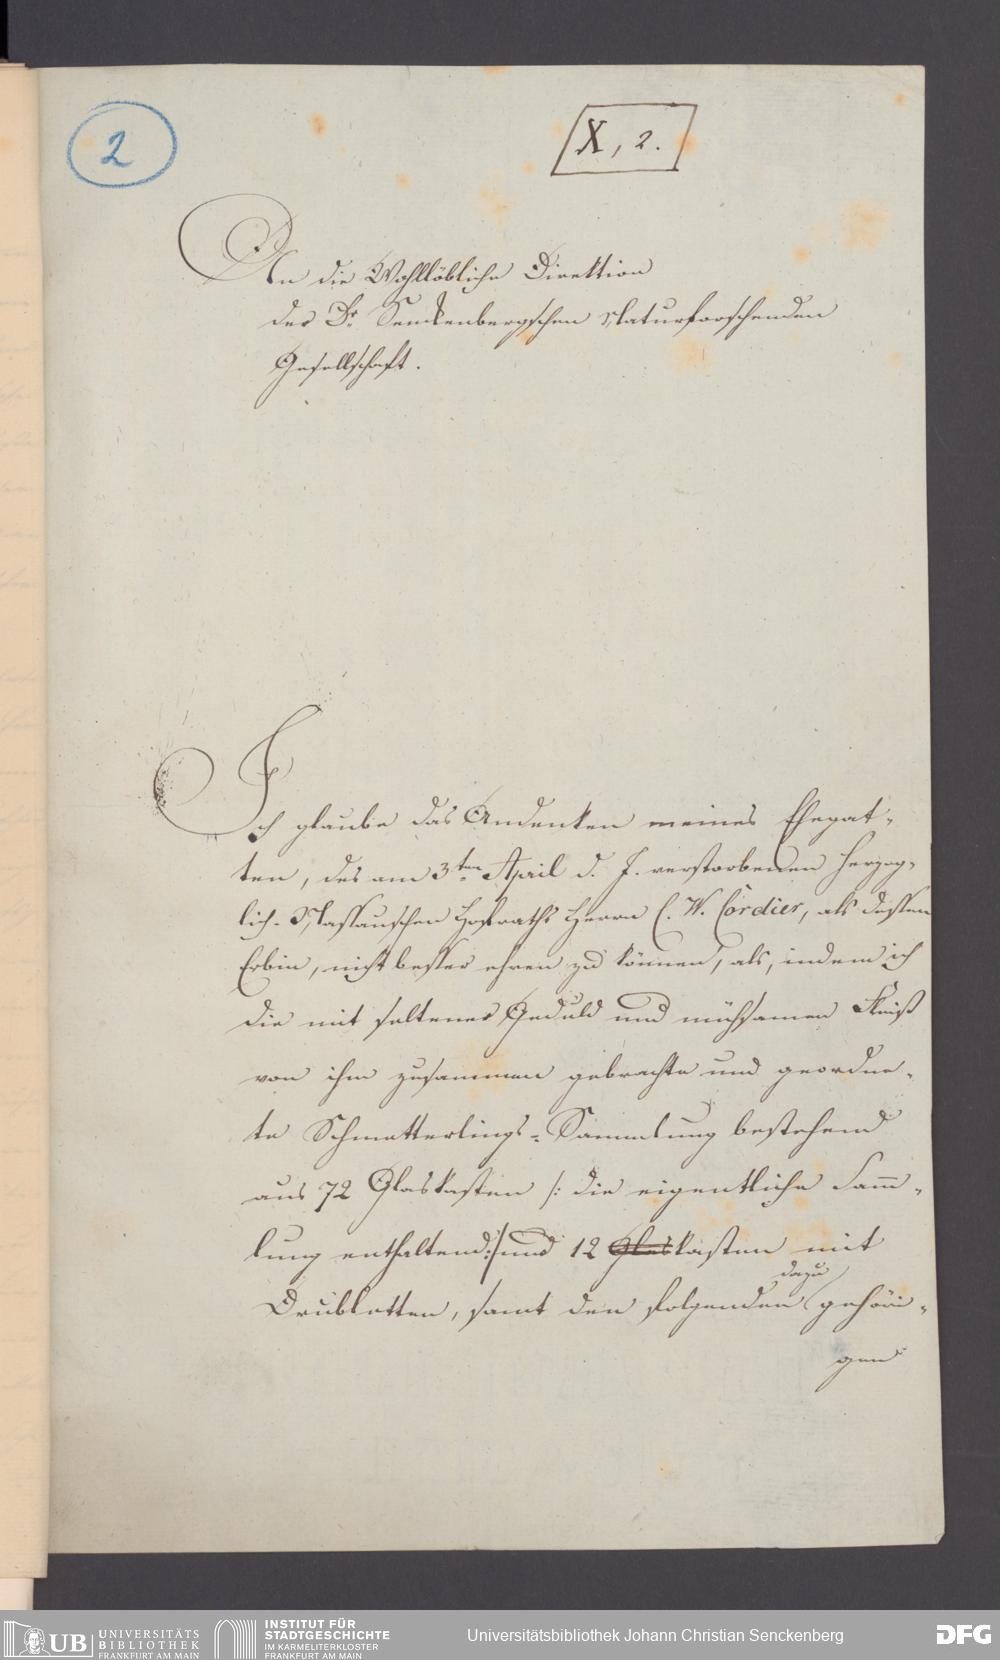 2
X, 2.
An die Wohllöbliche Direktion
der Dr Senckenbergschen Naturforschenden
Gesellschaft.
Ich glaube das Andenken meines Ehegat-
ten, des am 3ten April d. J. verstorbenen Herzog-
lich-Nassauschen Hofraths Herrn C. W. Cordier, als dessen
Erbin, nicht besser ehren zu können, als, indem ich
die mit seltener Geduld und mühsamen Fleiß
von ihm zusammen gebrachte und geordne-
te Schmetterlings-Sammlung bestehend
aus 72 Glaskasten /: die eigentliche Sam̅-
lung enthaltend :/ und 12 Glaskasten mit
dazu
Doubletten, samt den folgenden gehöri-
gen
UB UNIVERSITÄTS
BIBLIOTHEK
FRANKFURT AM MAIN
INSTITUT FÜR
STADTGESCHICHTE
IM KARMELITERKLOSTER
FRANKFURT AM MAIN
Universitätsbibliothek Johann Christian Senckenberg
DFG